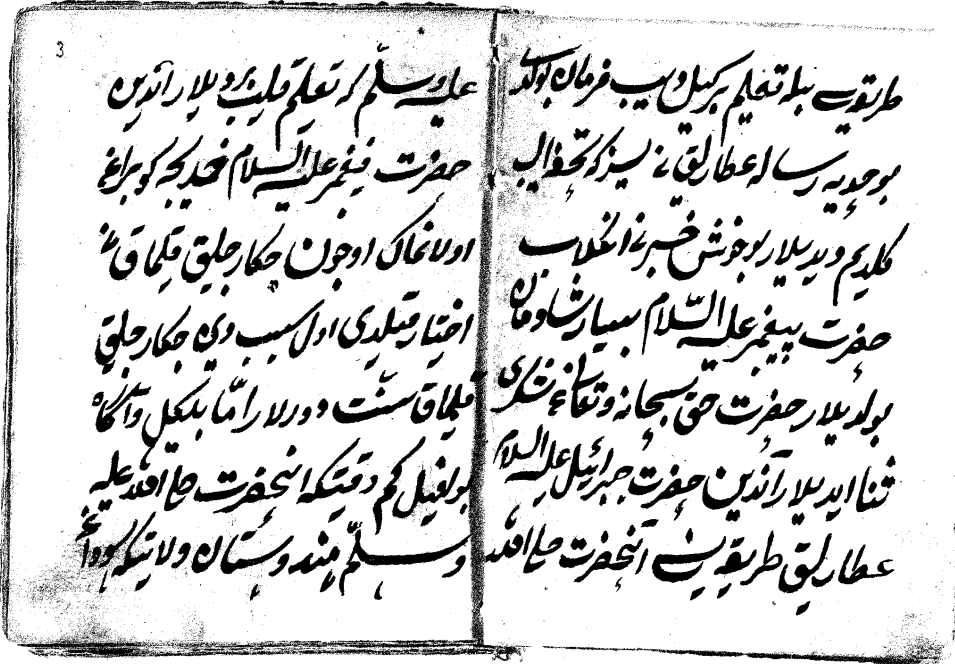 طریقه سی بیله تعلیم برکیل دیب فرمان بولدی
بو جویه رساله عطارلیق نی سیزکه تحفه الیب
کلدیم دیدیلار بو خوش خبرنی انکلاب
حضرت پیغمبر علیه السّلام بسیار شادمان
بولدیلار حضرت حق سبحانه و تعالی غه شکر
ثنا ایدیلار آندین حضرت جبرائیل علیه السلام
عطارلیق طریقه سی نی آنحضرت صلی الله
3
علیه وسلّم که تعلیم قلیب بردیلار آندین
حضرت پیغمبر علیه السلام خدیجه کوبراغ
اولانماک اوجون جکارجلیق قیلماق نی
اختیار قیلدی اول سبب دین جکارجلیق
قیلماق سنّت دورلار امّا بلکیل و آکاه
بولغیل کم وقتیکه انحضرت صلی الله علیه
وسلّم هندوستان ولایتیکه